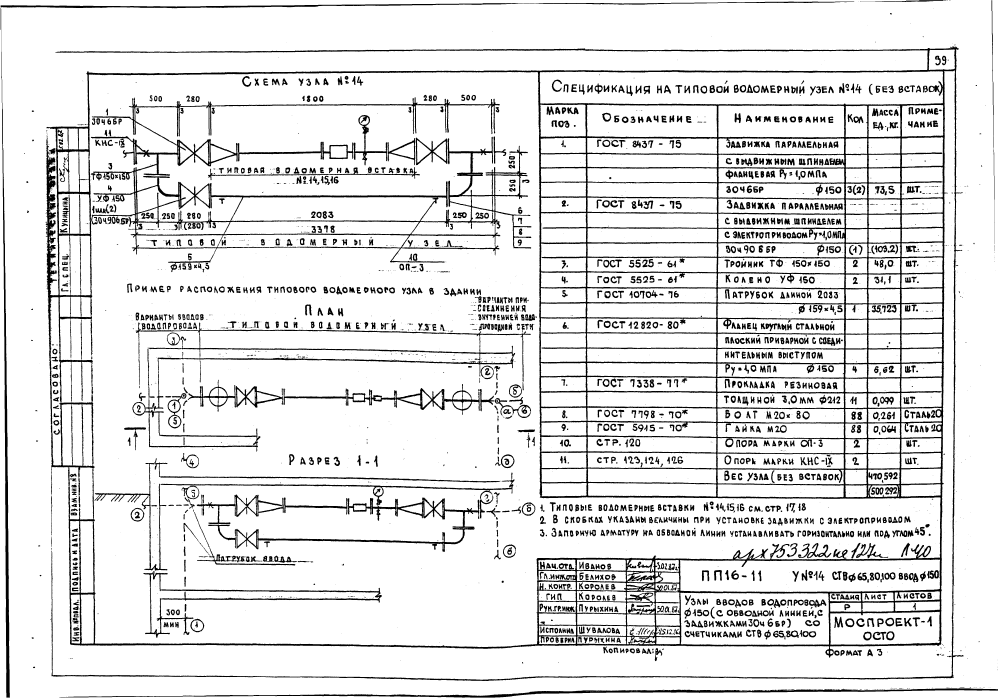 39
Схема узла №14
500 280 1800 280 500
3 3 3 3 3 3
1
30ч6БР
11
КНС-IX
3
ТФ150×150
4
УФ150
1 или (2)
(30ч906БР)
ТИПОВАЯ ВОДОМЕРНАЯ ВСТАВКА
№14,15,16
250 250
250 250 280 250 250
П(280)
2083
3378
ТИПОВОЙ ВОДОМЕРНЫЙ УЗЕЛ
6
7
8
9
5
Ø159×4,5
10
ОП-3
Пример расположения типового водомерного узла в здании
План
Варианты вводов
(водопровода)
ТИПОВОЙ ВОДОМЕРНЫЙ УЗЕЛ
Варианты при-
соединения
внутренней водо-
проводной сети
Разрез 1-1
Патрубок ввода
300
мин
Спецификация на типовой водомерный узел №14 (без вставок)
Марка поз. Обозначение Наименование Кол. Масса ед., кг. Приме-чание
1. ГОСТ 8437-75 Задвижка параллельная
с выдвижным шпинделем
фланцевая Ру=1,0мпа
30ч6бр Ø150 3(2) 73,5 шт.
2. ГОСТ 8437-75 Задвижка параллельная
с выдвижным шпинделем
с электроприводом Ру=1,0мпа
30ч906бр Ø150 (1) (103,2) шт.
3. ГОСТ 5525-61* Тройник ТФ 150×150 2 48,0 шт.
4. ГОСТ 5525-61* Колено УФ 150 2 31,1 шт.
5. ГОСТ 10704-76 Патрубок длиной 2083
Ø159×4,5 1 35,723 шт.
6. ГОСТ 12820-80* Фланец круглый стальной
плоский приварной с соеди-
нительным выступом
Ру=1,0 мпа Ø150 4 6,62 шт.
7. ГОСТ 7338-77* Прокладка резиновая
толщиной 3,0мм Ø212 11 0,099 шт.
8. ГОСТ 7798-70* Болт М20×80 88 0,261 Сталь20
9. ГОСТ 5915-70* Гайка М20 88 0,064 Сталь20
10. СТР. 120 Опора марки ОП-3 2 шт.
11. СТР. 123,124,126 Опоры марки КНС-IX 2 шт.
Вес узла (без вставок) 470,592
(500,292)
1. Типовые водомерные вставки №14,15,16 см. стр. 17,18
2. В скобках указаны величины при установке задвижки с электроприводом
3. Запорную арматуру на обводной линии устанавливать горизонтально или под углом 45°.
арх753322 Л-40
Нач.отд. Иванов
Гл.инж.отд Белихов
Н. контр. Королев
ГИП Королев
Рук.гр.инж. Пурыхина
Исполнил Шувалова
Проверил Пурыхина
ПП16-11 У№14 СТВØ65,80,100 ввод Ø150
Узлы вводов водопровода
Ø150 (с обводной линией, с
задвижками 30ч6бр) со
счетчиками СТВ Ø65,80,100
Стадия Лист Листов
Р 1
Моспроект-1
ОСТО
Копировал:
Формат А3
СОГЛАСОВАНО:
ТЕХНИЧЕСКИЙ ОТДЕЛ
Гл. спец. Куницина
Инв.№подл. Подпись и дата Взам.инв.№